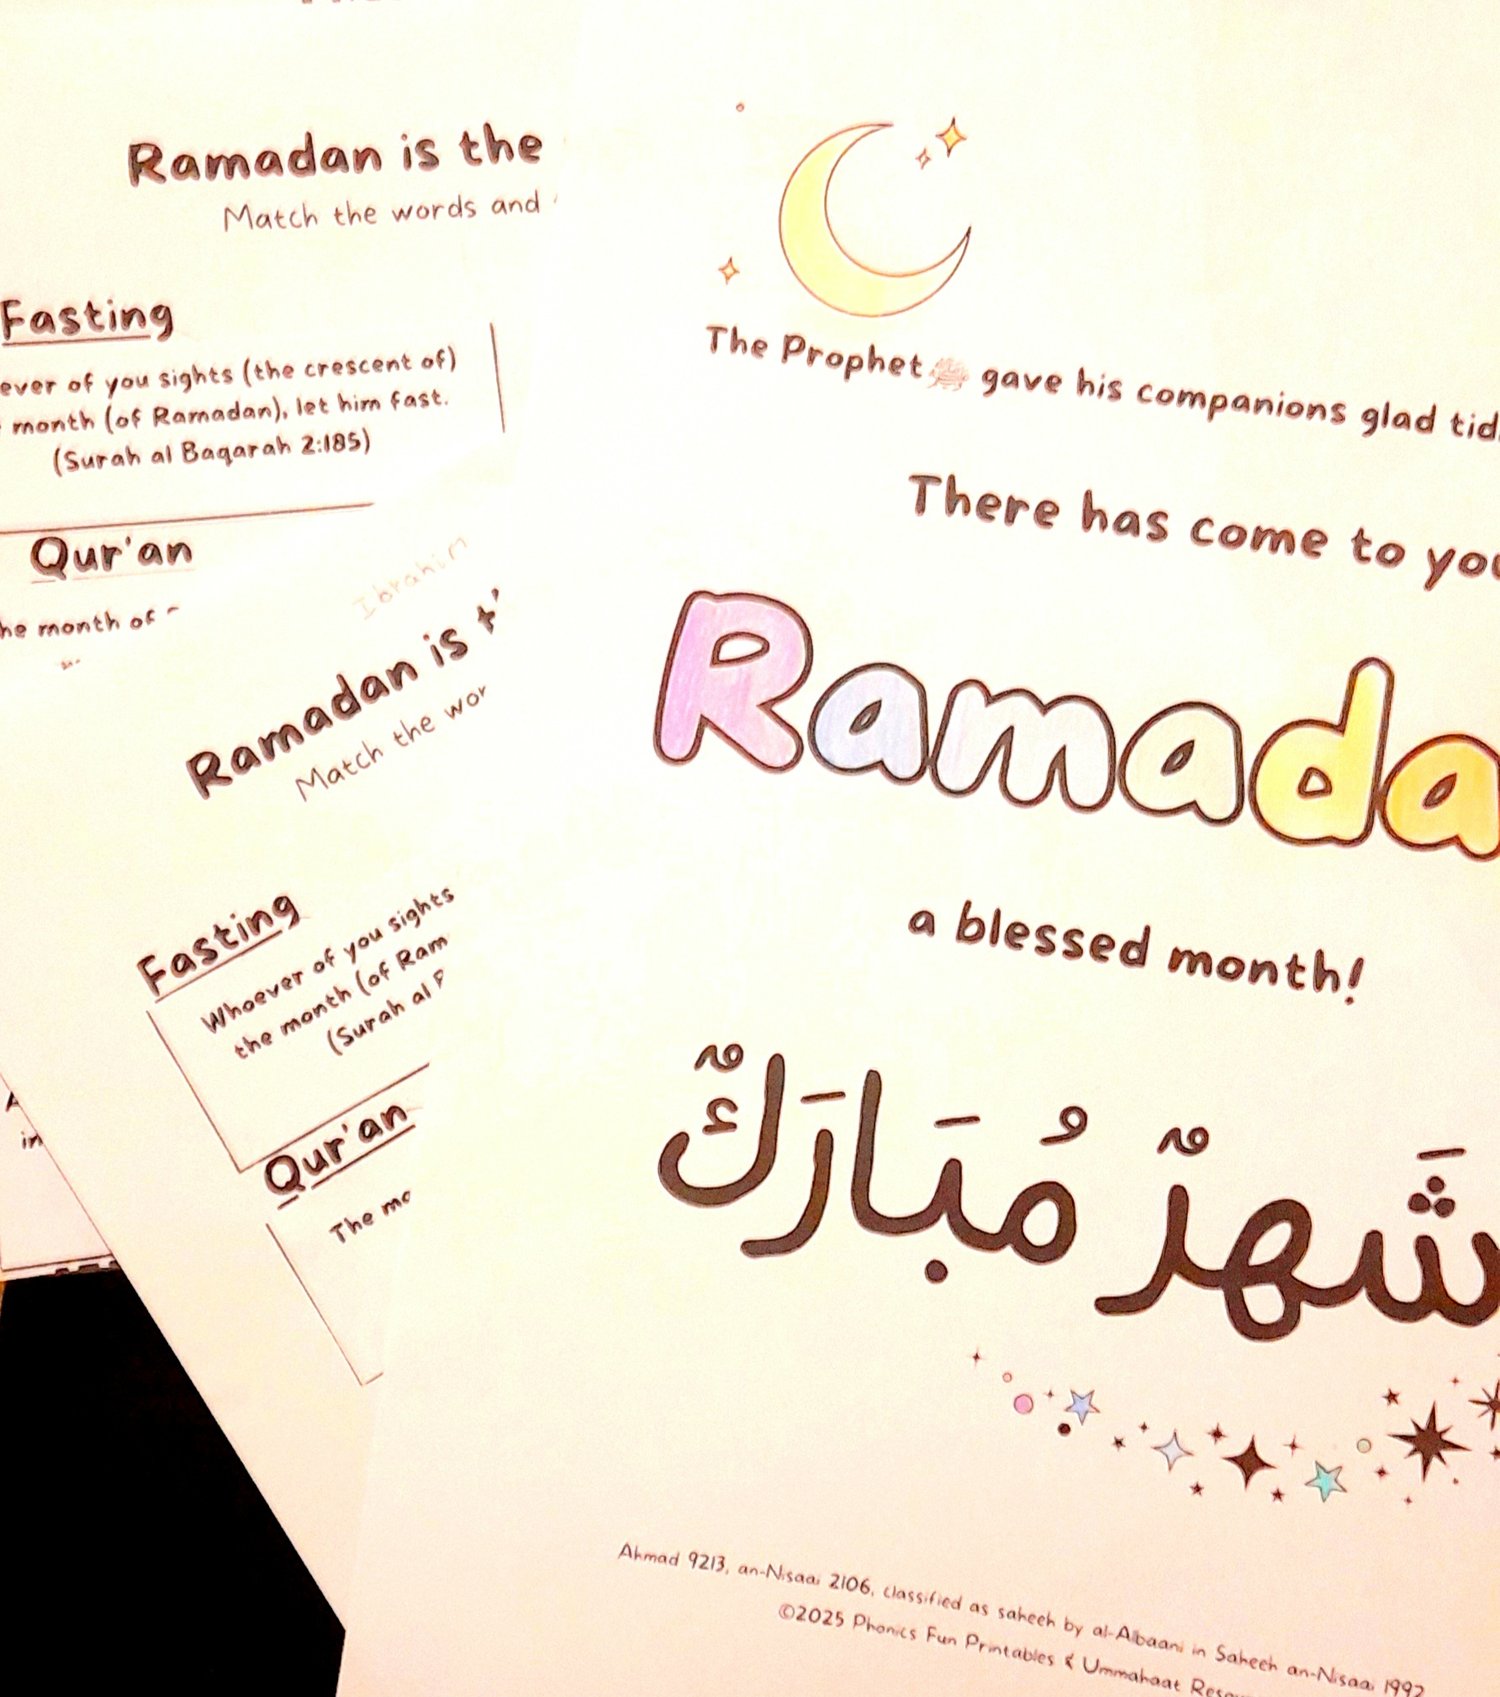 Ramadan is the
Match the words and
Fasting
ever of you sights (the crescent of)
month (of Ramadan), let him fast.
(Surah al Baqarah 2:185)
Qur'an
he month of
Ibrahim
Ramadan is
Match the
Fasting
Whoever of you sights
the month (of Ram
(Surah al
Qur'an
The
in
The Prophet ﷺ gave his companions glad tid
There has come to you
Ramada
a blessed month!
شَهرٌ مُبَارَكٌ
Ahmad 9213, an-Nisaai 2106, classified as saheeh by al-Albaani in Saheeh an-Nisaai 1992
©2025 Phonics Fun Printables & Ummahaat